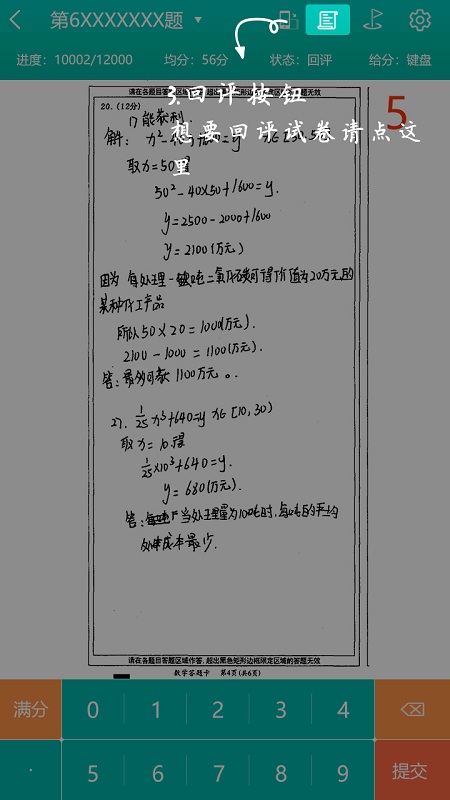 第6XXXXXXX题
进度：10002/12000 均分：56分 状态：回评 给分：键盘
请在各题目答题区域作答，超出黑色矩形边框限定区域的答题无效
3.回评按钮
想要回评试卷请点这
里
5
20.（12分）
1) 能获利.
解：
取x=50得
50²-40×50+1600=y.
y=2500-2000+1600
y=2100(万元)
因为 每处理一吨二氧化碳可得价值为20万元的
某种化工产品
所以50×20=1000(万元).
2100-1000=1100(万元).
答：最多可获1100万元。.
2). 1/25 x³+640=y x∈[10,30)
取x=10.得
1/25×10³+640=y.
y=680(万元).
答：当处理量为10吨时，每吨的平均
处理成本最少.
请在各题目答题区域作答，超出黑色矩形边框限定区域的答题无效
数学答题卡 第4页(共6页)
满分 0 1 2 3 4
· 5 6 7 8 9 提交